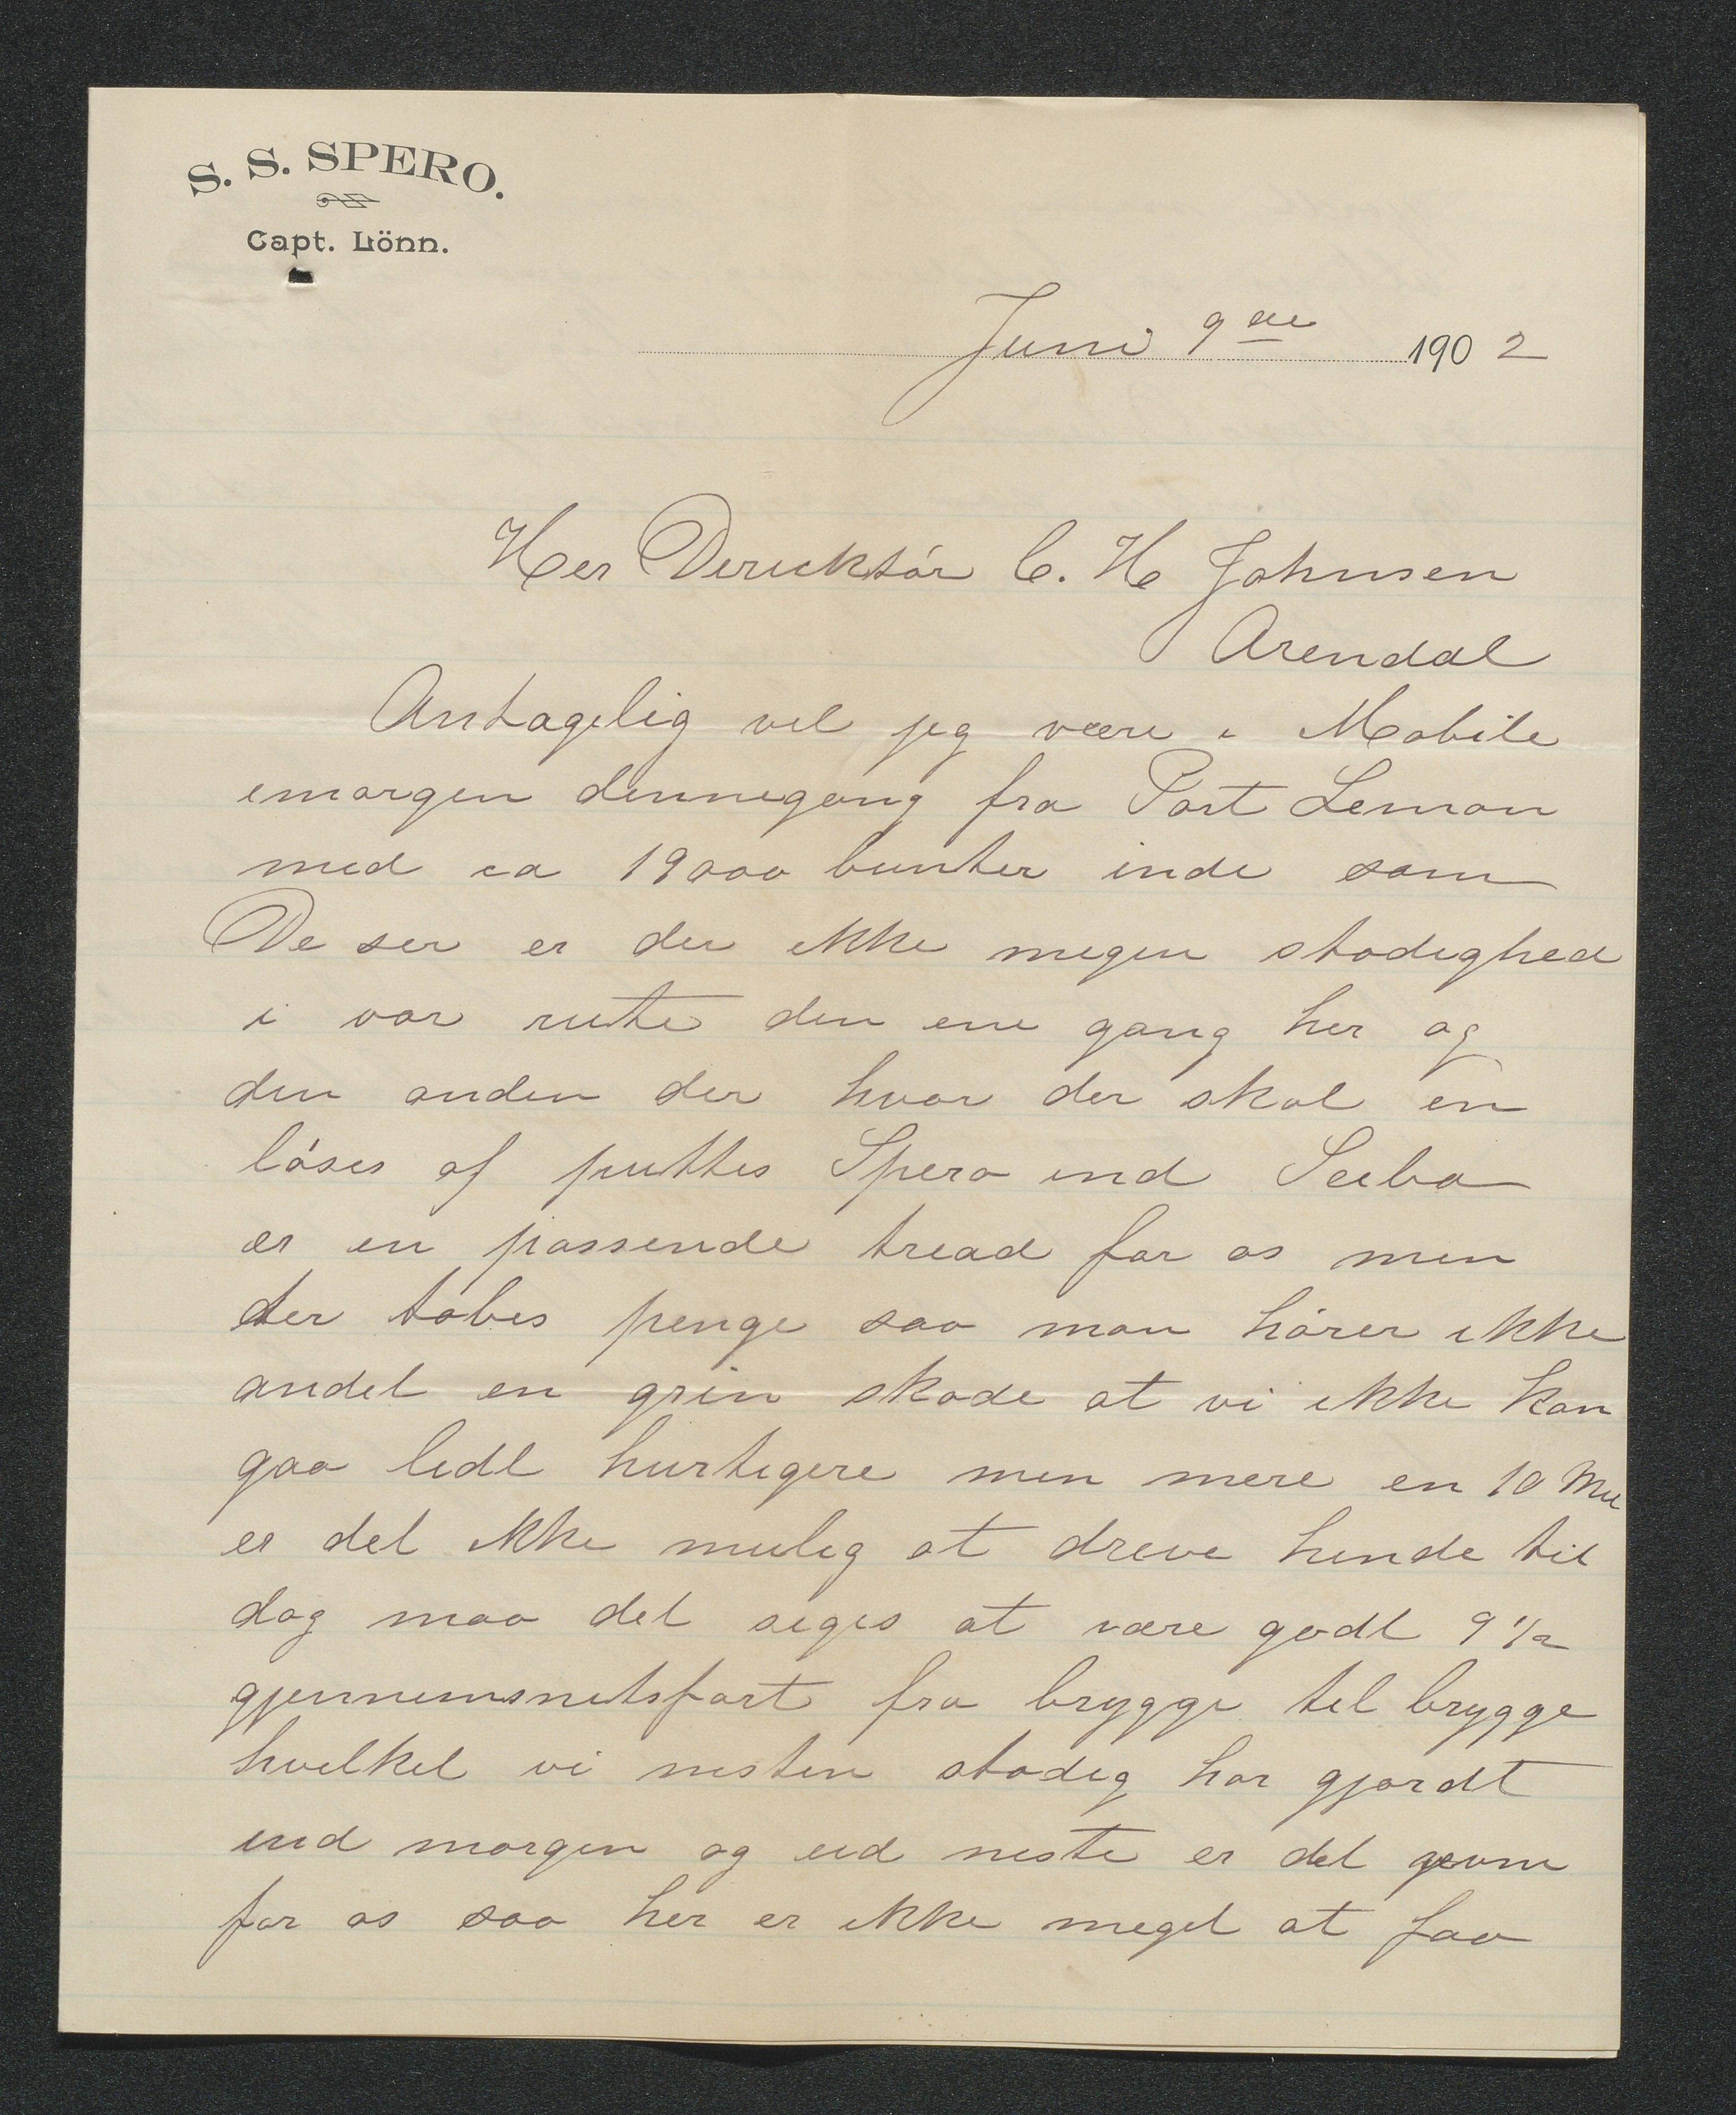 S. S. SPERO.
Capt. Lönn.
Juni 9de 1902
Her Direcktör C. H Johnsen
Arendal
Antagelig vil jeg være i Mobile
imorgen dennegang fra Port Lemon
med ca 19000 bunter inde som
De ser er der ikke megen stadighed
i vor rute den ene gang her og
den anden der hvor der skal en
löses af puttes Spero ind Seiba
er en passende tread for os men
der tabes penge saa man hörer ikke
andet en grin skade at vi ikke kan
gaa lidt hurtigere men mere en 10 Mil
er det ikke mulig at drive hende til
dog maa det siges at være godt 9 1/2
gjennemsnitsfart fra brygge til brygge
hvilket vi nesten stadig har gjordt
ind morgen og ud neste er det
for os saa her er ikke meget at faa